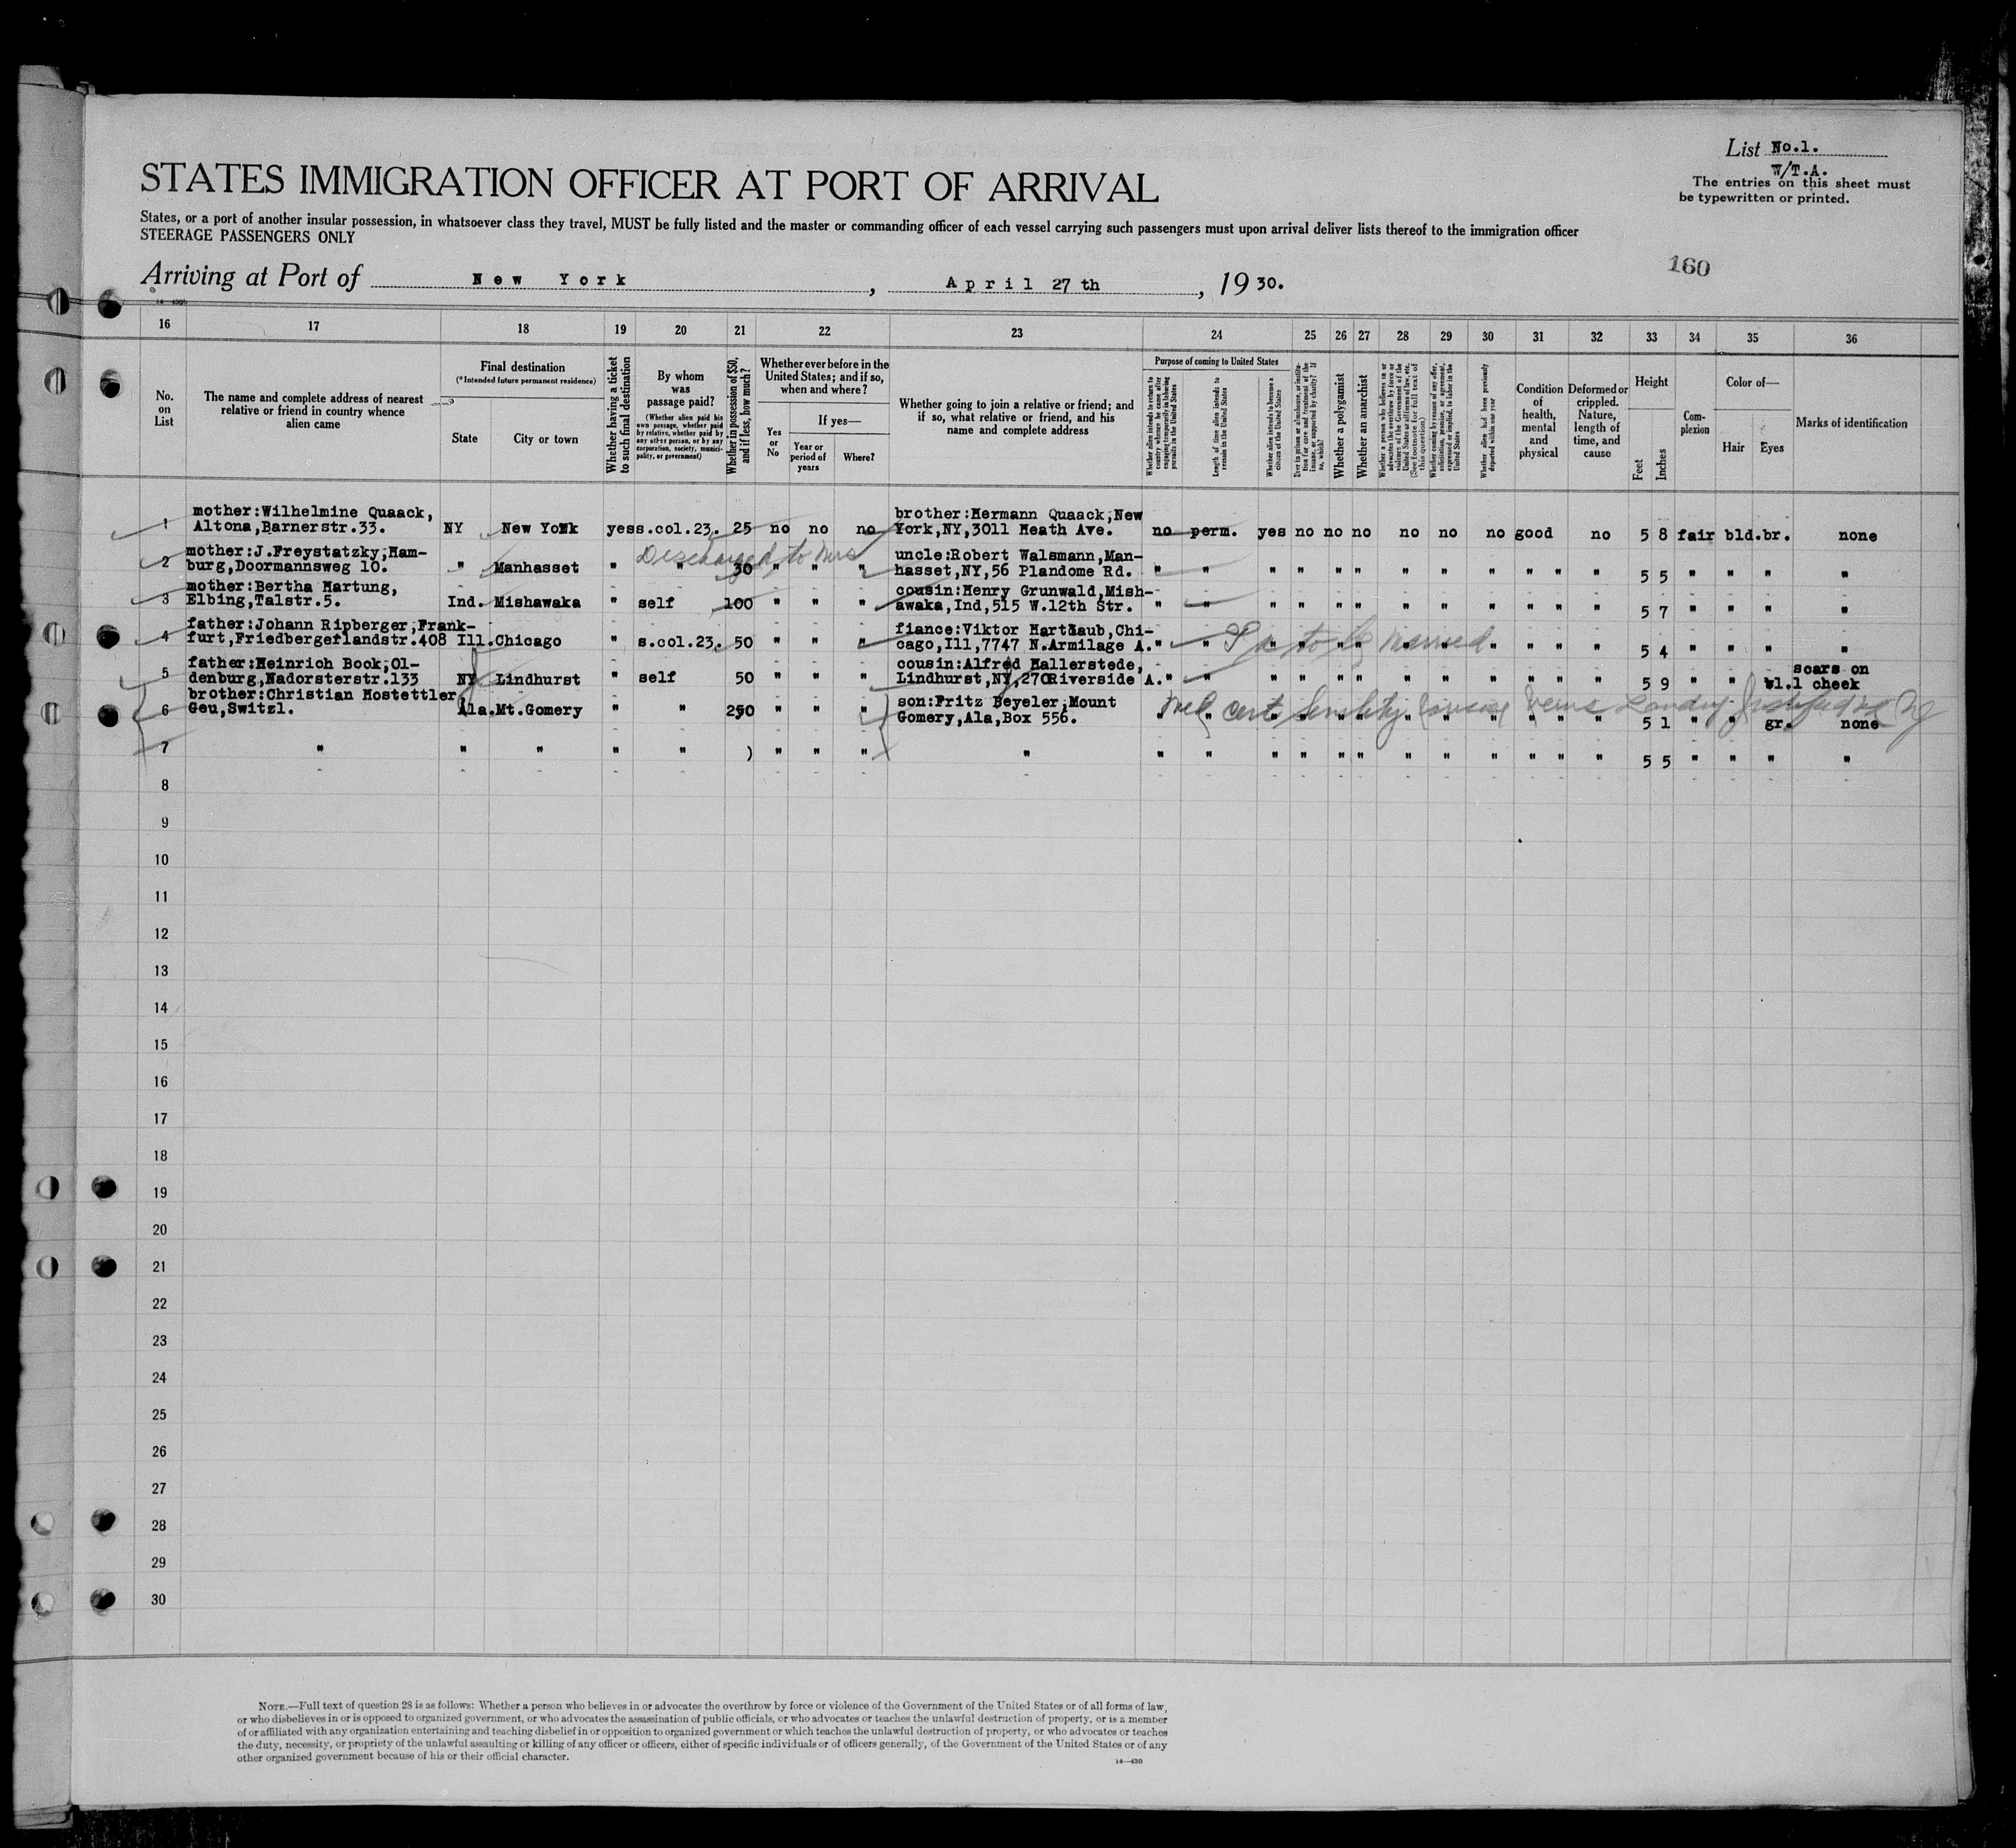 List No.1.
W/T.A.
The entries on this sheet must
be typewritten or printed.
STATES IMMIGRATION OFFICER AT PORT OF ARRIVAL
States, or a port of another insular possession, in whatsoever class they travel, MUST be fully listed and the master or commanding officer of each vessel carrying such passengers must upon arrival deliver lists thereof to the immigration officer
STEERAGE PASSENGERS ONLY
160
Arriving at Port of New York, April 27th, 1930.
16 17 18 19 20 21 22 23 24 25 26 27 28 29 30 31 32 33 34 35 36
No. on List
The name and complete address of nearest relative or friend in country whence alien came
Final destination
(*Intended future permanent residence)
State
City or town
Whether having a ticket to such final destination
By whom was passage paid?
(Whether alien paid his own passage, whether paid by relative, whether paid by any other person, or by any corporation, society, municipality, or government)
Whether in possession of $50, and if less, how much?
Whether ever before in the United States; and if so, when and where?
Yes or No
If yes—
Year or period of years
Where?
Whether going to join a relative or friend; and if so, what relative or friend, and his name and complete address
Purpose of coming to United States
Whether alien intends to return to country whence he came after engaging temporarily in laboring pursuits in the United States
Length of time alien intends to remain in the United States
Whether alien intends to become a citizen of the United States
Ever in prison or almshouse, or institution for care and treatment of the insane, or supported by charity? If so, which?
Whether a polygamist
Whether an anarchist
Whether a person who believes in or advocates the overthrow by force or violence of the Government of the United States or all forms of law, etc. (See footnote for full text of this question)
Whether coming by reason of any offer, solicitation, promise, or agreement, expressed or implied, to labor in the United States
Whether alien had been previously deported within one year
Condition of health, mental and physical
Deformed or crippled. Nature, length of time, and cause
Height
Feet
Inches
Complexion
Color of—
Hair
Eyes
Marks of identification
1 mother:Wilhelmine Quaack, Altona,Barnerstr.33. NY New York yes s.col.23. 25 no no no brother:Hermann Quaack,New York,NY,3011 Heath Ave. no perm. yes no no no no no no good no 5 8 fair bld. br. none
Discharged to Mrs
2 mother:J.Freystatzky,Hamburg,Doormannsweg 10. " Manhasset " " 30 " " " uncle:Robert Walsmann,Manhasset,NY,56 Plandome Rd. " " " " " " " " " " " " 5 5 " " " "
3 mother:Bertha Hartung, Elbing,Talstr.5. Ind. Mishawaka " self 100 " " " cousin:Henry Grunwald,Mishawaka,Ind,515 W.12th Str. " " " " " " " " " " " " 5 7 " " " "
4 father:Johann Ripberger,Frankfurt,Friedbergerlandstr.408 Ill. Chicago " s.col.23. 50 " " " fiance:Viktor Harttaub,Chicago,Ill,7747 N.Armilage A. " " " " " " " " " " " 5 4 " " " "
to be married
5 father:Heinrich Book,Oldenburg,Nadorsterstr.133 NJ Lindhurst " self 50 " " " cousin:Alfred Hallerstede, Lindhurst,NJ,270 Riverside A. " " " " " " " " " " " " 5 9 " " bl. scars on l cheek
6 brother:Christian Hostettler Geu,Switzl. Ala. Mt.Gomery " " 250 " " " son:Fritz Beyeler,Mount Gomery,Ala,Box 556. " " " " " " " " " " " " 5 1 " " gr. none
Med cert Senility Varicose Veins Landing
7 " " " " " ) " " " " " " " " " " " " " " " " 5 5 " " " "
8
9
10
11
12
13
14
15
16
17
18
19
20
21
22
23
24
25
26
27
28
29
30
NOTE.—Full text of question 28 is as follows: Whether a person who believes in or advocates the overthrow by force or violence of the Government of the United States or of all forms of law,
or who disbelieves in or is opposed to organized government, or who advocates the assassination of public officials, or who advocates or teaches the unlawful destruction of property, or is a member
of or affiliated with any organization entertaining and teaching disbelief in or opposition to organized government or which teaches the unlawful destruction of property, or who advocates or teaches
the duty, necessity, or propriety of the unlawful assaulting or killing of any officer or officers, either of specific individuals or of officers generally, of the Government of the United States or of any
other organized government because of his or their official character.
14—430